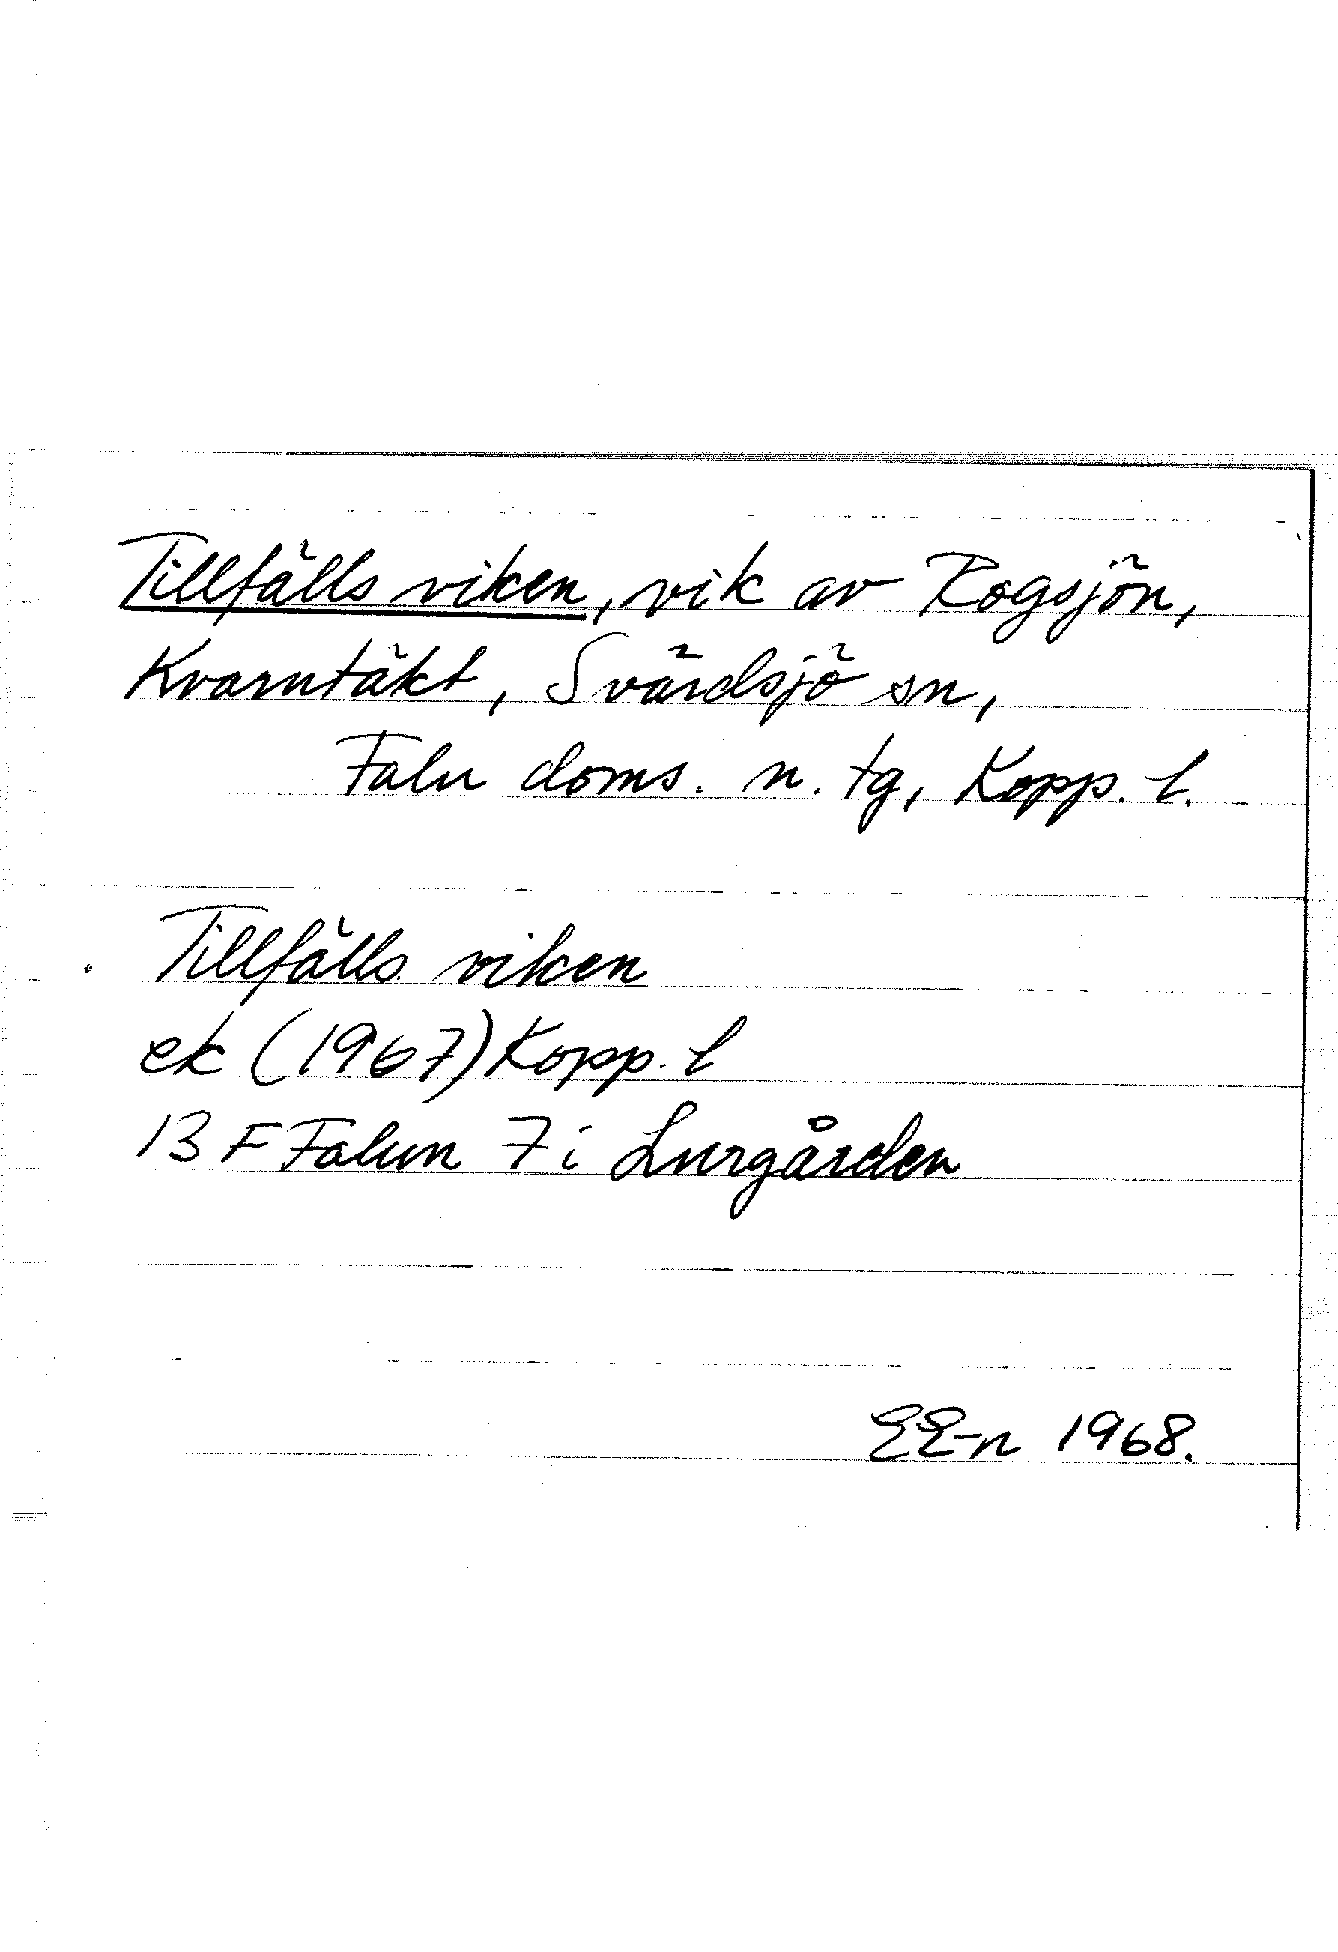 Tillfälls viken, vik av Rogsjön,
Kvarntäkt, Svärdsjö sn,
Falu doms. n. tg, Kopp. l.
Tillfälls viken
ek (1967) Kopp. l
13 F Falun 7 i Lurgården
EE-n 1968.